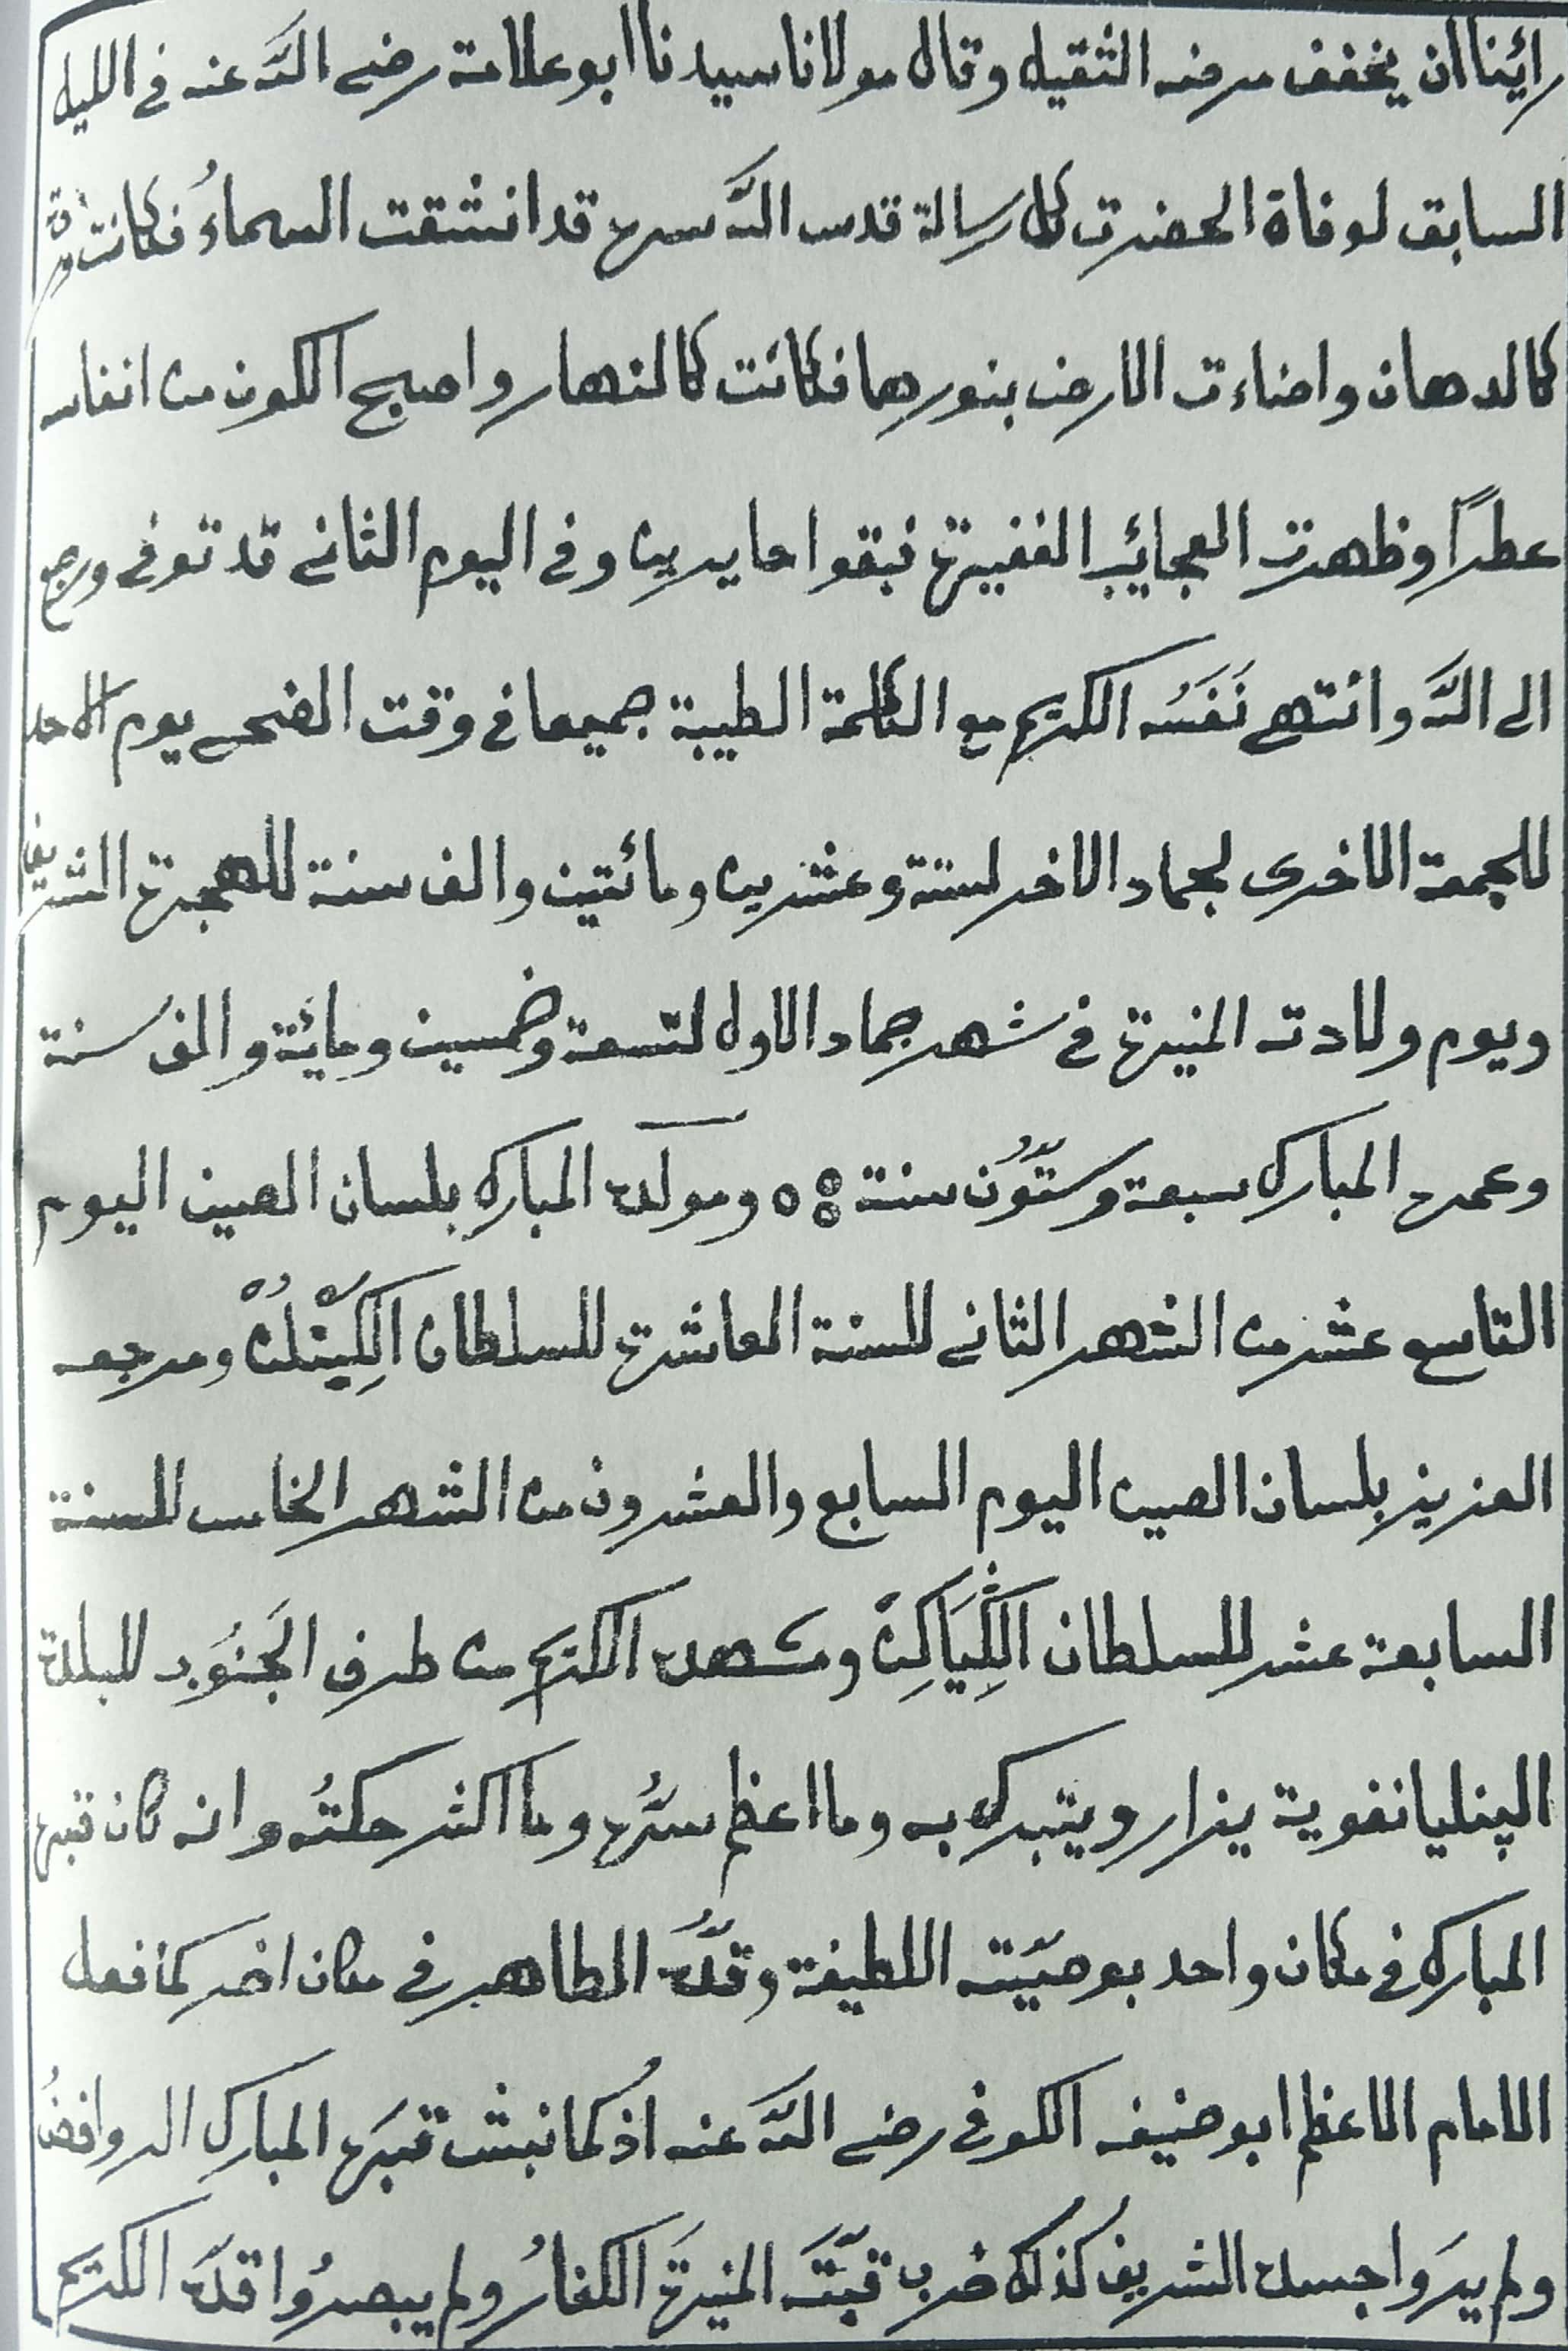 رائينا ان يخفف مرضه الثقيل وقال مولانا سيدنا ابو علامة رضى الله عنه فى الليل
السابق لوفاة الحضرت كل رسالة قدس الله سره قد انشقت السماءُ فكانت وردة
كالدهان واضاءت الارض بنورها فكانت كالنهار واصبح الكون من انفاسه
عطراً وظهرت العجائب الغفيرة فبقوا حايرين وفى اليوم الثانى قد توفى ورجع
الى الله وانتهى نَفَسُه الكريم مع الكلمة الطيبة جميعا فى وقت الضحى يوم الاحد
للجمعة الاخرى لجماد الاخر لستة وعشرين ومائتين والف سنة للهجرة الشريفة
ويوم ولادته المنيرة فى شهر جماد الاول لتسعة وخمسين ومائة والف سنة
وعمره المبارك سبعة وستّون سنة ٥٨ ومولده المبارك بلسان الصين اليوم
التاسع عشر من الشهر الثانى للسنة العاشرة للسلطان الكِيَنْلُنْ ومرجعه
العزيز بلسان الصين اليوم السابع والعشرون من الشهر الخامس للسنة
السابعة عشر للسلطان الكِيَاكِنْ ومشهده الكريم من طرف الجَنُوب للبلدة
الپنليانفوية يزار ويتبرك به وما اعظم سرَّه وما اكثر حكمتُه وانه كان قبره
المبارك فى مكان واحد بوصيّته اللطيفة وقدّه الطاهر فى مكان اخر كما فعل
الامام الاعظم ابو حنيفه الكوفى رضى الله عنه اذ كما نبش قبرَه المبارك الروافضُ
ولم يرَوا جسده الشريف كذلك ضرب قبّتَه المنيرةَ الكفارُ ولم يبصرُوا قدّه الكريم